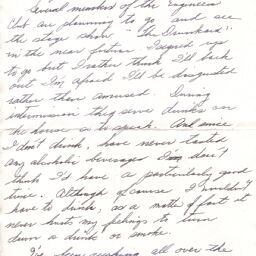 Several members of the Engineers
Club are planning to go and see
the stage show "The Drunkard".
in the near future. I signed up
to go but I rather think I'll back
out. I'm afraid I'll be disgusted
rather than amused. During
intermission they serve drinks on
the house so to speak. And since
I don't drink, have never tasted
any alcoholic beverages I'm don't
think I'd have a particularly good
time. Although of course I wouldn't
have to drink, as a matter of fact it
never hurts my feelings to turn
down a drink or smoke.
I'm all over the